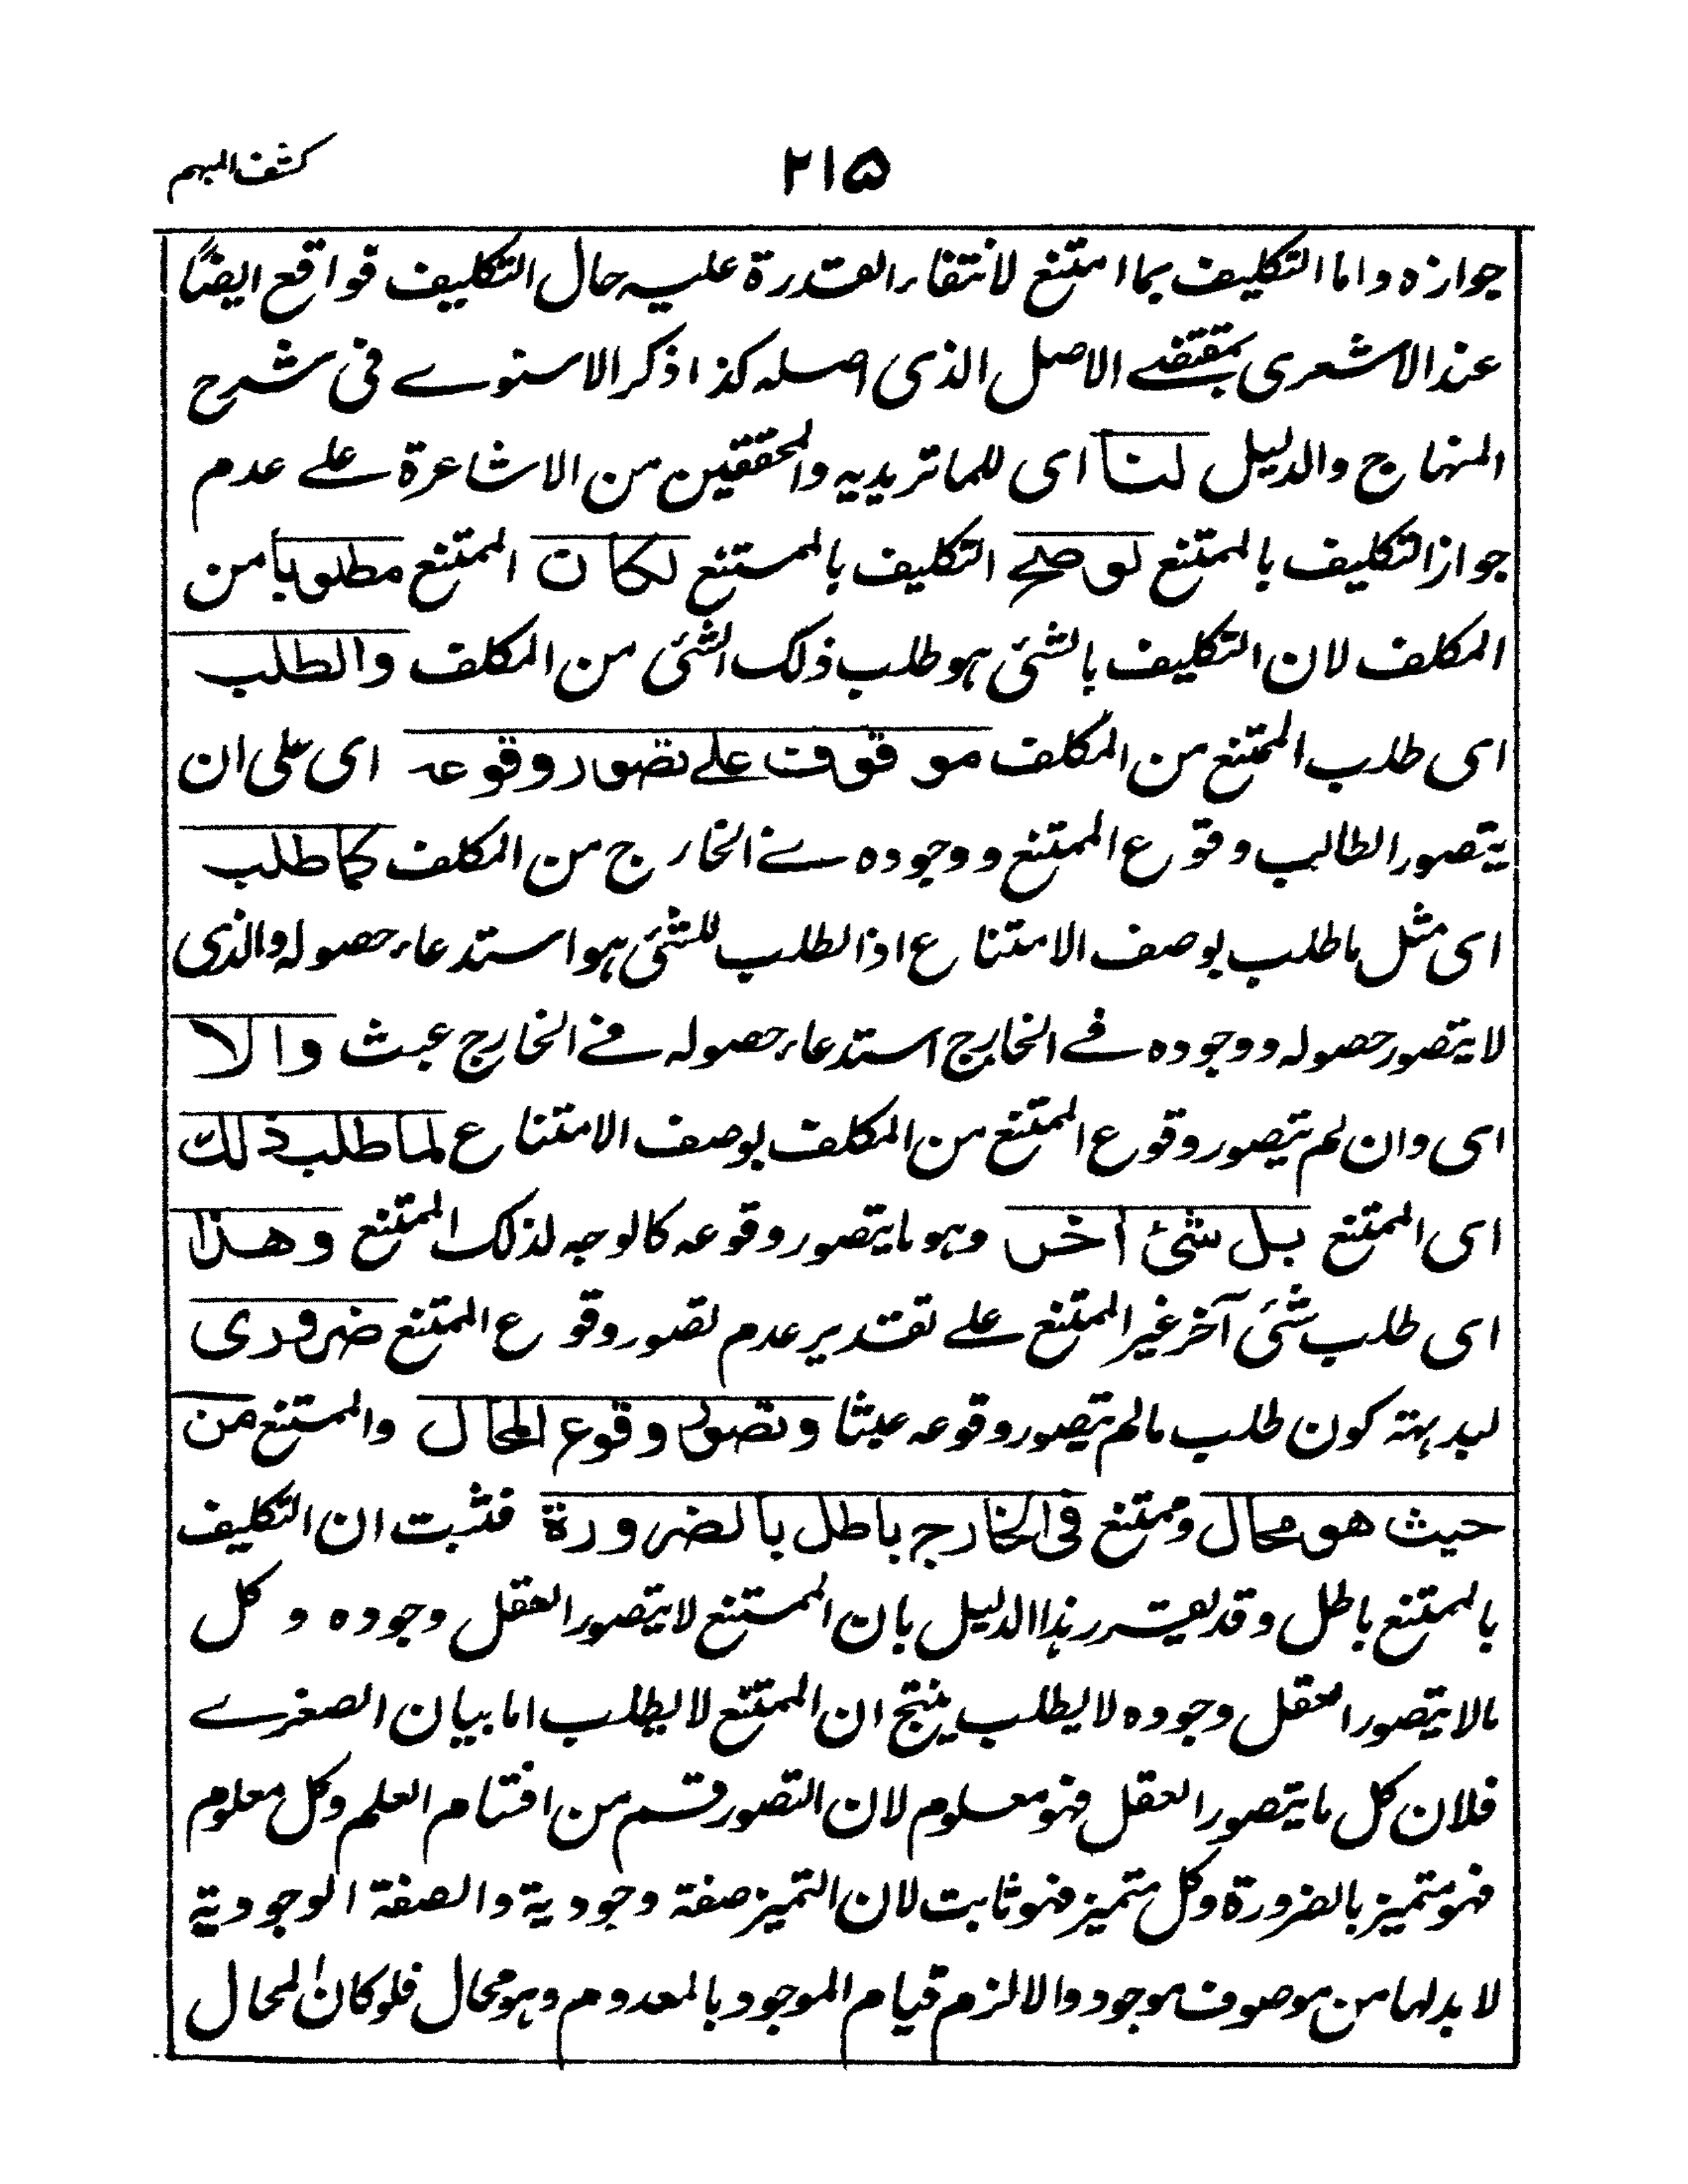 كشف المبهم
٢١٥
جوازه واما التكليف بما امتنع لانتفاء القدرة عليه حال التكليف فواقع ايضًا
عند الاشعرى بمقتضے الاصل الذى اصله كذا ذكر الاسنوے فى شرح
المنهاج والدليل لنا اى للماتريديه والمحققين من الاشاعرة علے عدم
جواز التكليف بالممتنع لو صح التكليف بالممتنع لكان الممتنع مطلوبا من
المكلف لان التكليف بالشئ هو طلب ذلك الشئ من المكلف والطلب
اى طلب الممتنع من المكلف موقوف علے تصور وقوعه اى على ان
يتصور الطالب وقوع الممتنع ووجوده فے الخارج من المكلف كما طلب
اى مثل ما طلب بوصف الامتناع اذ الطلب للشئ هو استدعاء حصوله والذى
لا يتصور حصوله ووجوده فے الخارج استدعاء حصوله فے الخارج عبث والا
اى وان لم يتصور وقوع الممتنع من المكلف بوصف الامتناع لما طلب ذلك
اى الممتنع بل شئ اخر وهو ما يتصور وقوعه كالوجه لذلك الممتنع وهذا
اى طلب شئ آخر غير الممتنع علے تقدير عدم تصور وقوع الممتنع ضرورى
لبديهة كون طلب ما لم يتصور وقوعه عبثا وتصور وقوع المحال والممتنع من
حيث هو محال وممتنع فى الخارج باطل بالضرورة فثبت ان التكليف
بالممتنع باطل وقد يقرر هذا الدليل بان الممتنع لا يتصور العقل وجوده و كل
مالا يتصور العقل وجوده لا يطلب ينتج ان الممتنع لا يطلب اما بيان الصغرے
فلان كل ما يتصور العقل فهو معلوم لان التصور قسم من اقسام العلم وكل معلوم
فهو متميز بالضرورة وكل متميز فهو ثابت لان التميز صفة وجودية والصفة الوجودية
لا بد لها من موصوف موجود والا لزم قيام الموجود بالمعدوم وهو محال فلو كان المحال